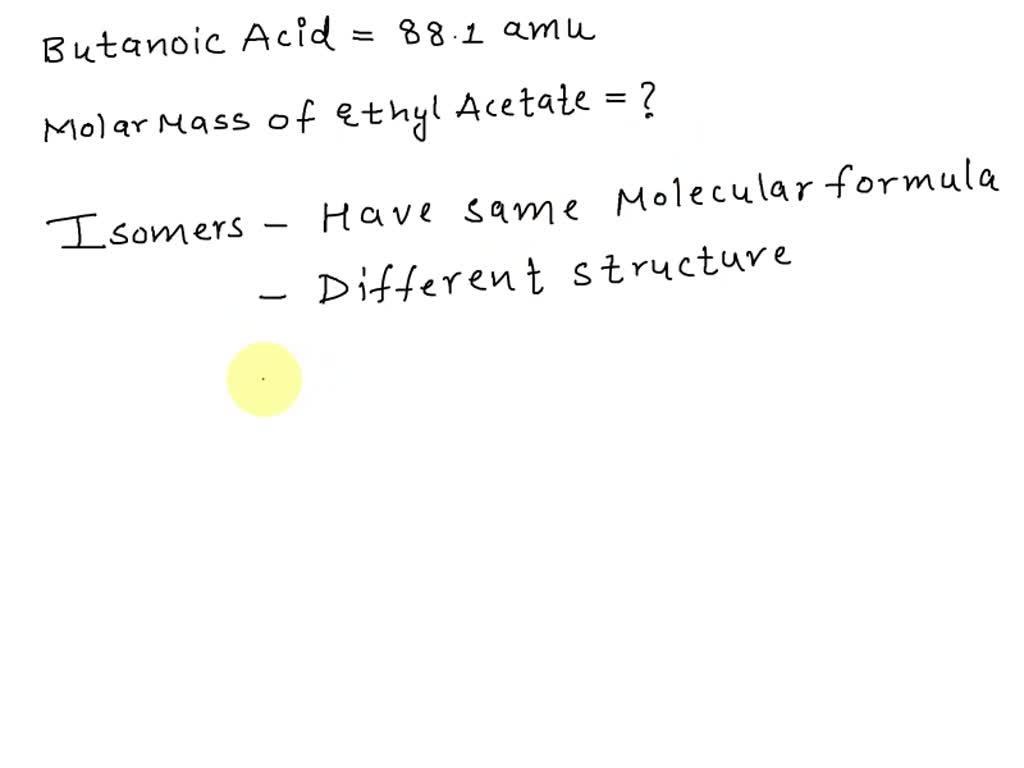 Butanoic Acid = 88.1 amu
Molar Mass of Ethyl Acetate = ?
Isomers - Have same Molecular formula
- Different structure